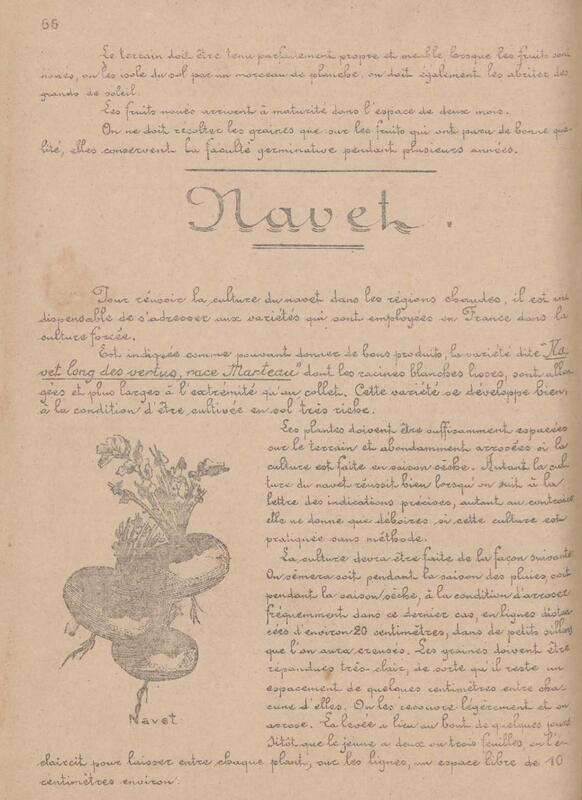 66
Le terrain doit être tenu parfaitement propre et meuble, lorsque les fruits sont
noués, on les isole du sol par un morceau de planche, on doit également les abriter des
grands de soleil.
Les fruits noués arrivent à maturité dans l'espace de deux mois.
On ne doit récolter les graines que sur les fruits qui ont paru de bonne qua-
lité, elles conservent la faculté germinative pendant plusieurs années.
Navet.
Pour réussir la culture du navet dans les régions chaudes, il est in
dispensable de s'adresser aux variétés qui sont employées en France dans la
culture forcée.
Est indiquée comme pouvant donner de bons produits, la variété dite "Na
vet long des vertus, race Marteau" dont les racines blanches lisses, sont allon
gées et plus larges à l'extrémité qu'au collet. Cette variété se développe bien,
à la condition d'être cultivée en sol très riche.
Les plantes doivent être suffisamment espacées
sur le terrain et abondamment arrosées si la
culture est faite en saison sèche. Autant la cul
ture du navet réussit bien lorsqu'on suit à la
lettre des indications précises, autant au contraire
elle ne donne que déboires si cette culture est
pratiquée sans méthode.
La culture devra être faite de la façon suivante
On sèmera soit pendant la saison des pluies, soit
pendant la saison sèche, à la condition d'arroser
fréquemment dans ce dernier cas, en lignes distan
cées d'environ 20 centimètres, dans de petits sillons
que l'on aura creusés. Les graines doivent être
répandues très-clair, de sorte qu'il reste un
espacement de quelques centimètres entre cha
cune d'elles. On les recouvre légèrement et on
arrose. La levée a lieu au bout de quelques jours
Sitôt que le jeune a deux ou trois feuilles, on l'é-
claircit pour laisser entre chaque plant, sur les lignes, un espace libre de 10
centimètres environ.
Navet